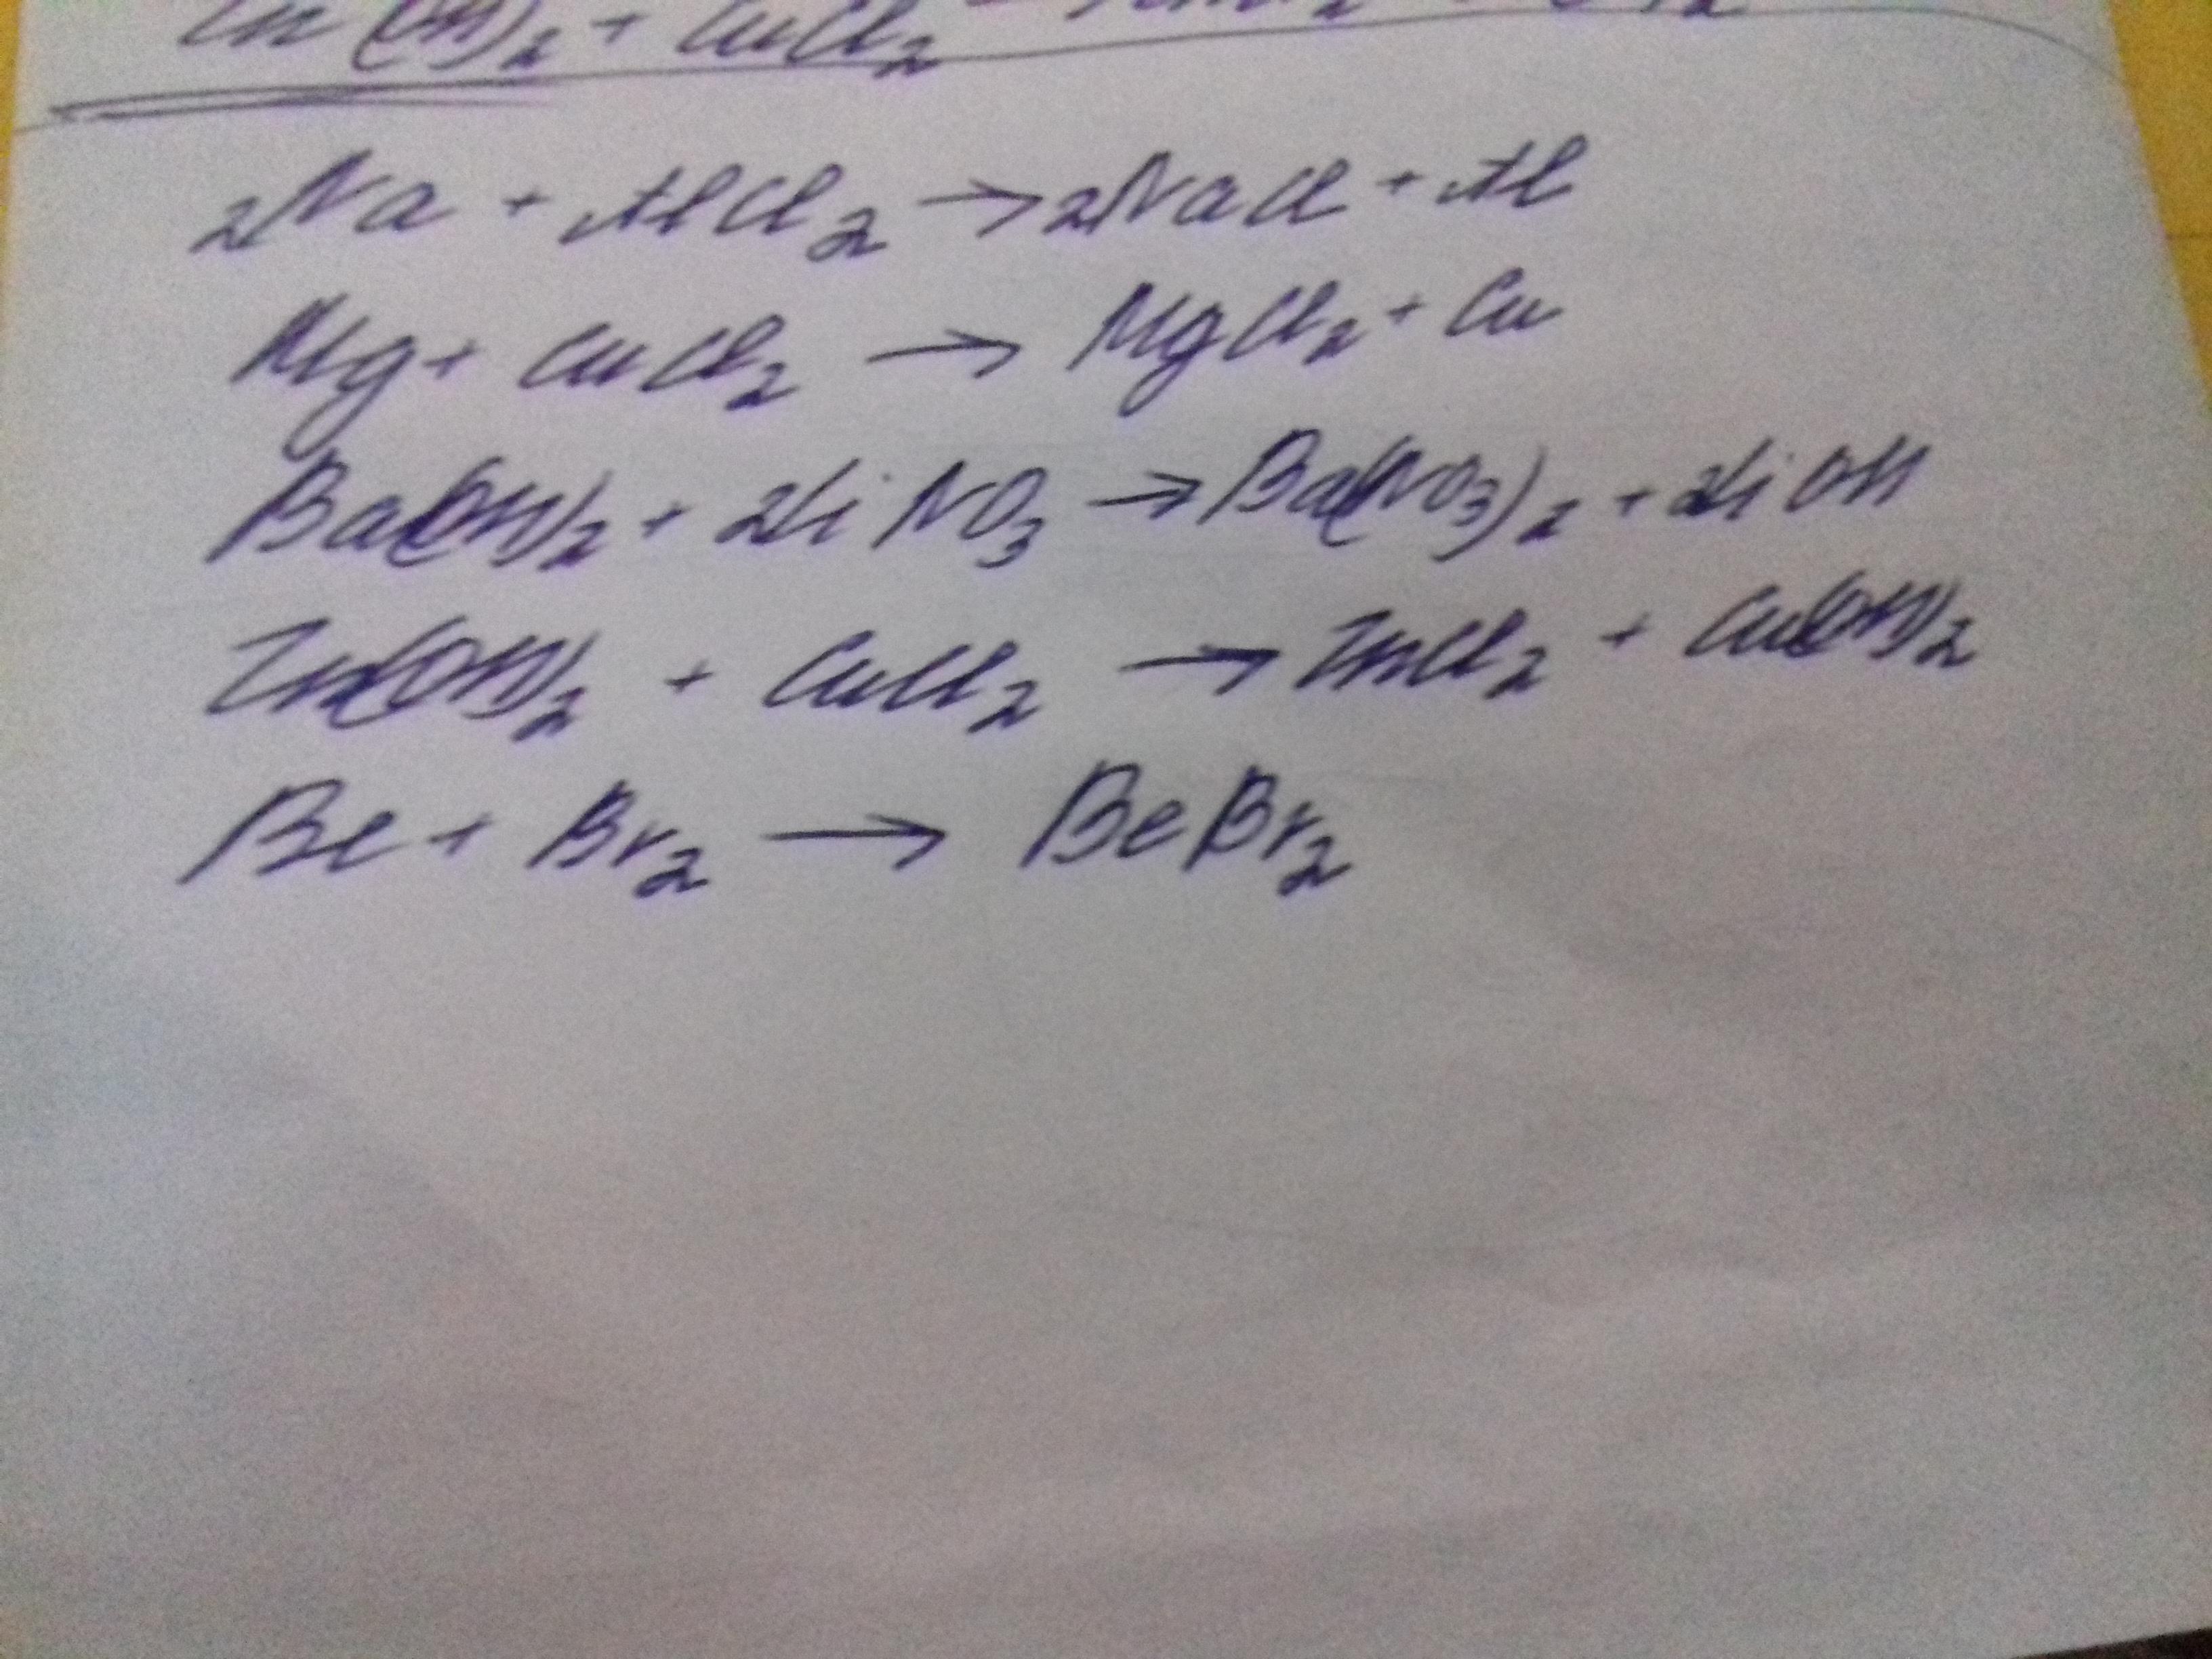 Zn(OH)₂ + CuCl₂
2Na + AlCl₂ → 2NaCl + Al
Mg + CuCl₂ → MgCl₂ + Cu
Ba(OH)₂ + 2LiNO₃ → Ba(NO₃)₂ + 2LiOH
Zn(OH)₂ + CuCl₂ → ZnCl₂ + Cu(OH)₂
Be + Br₂ → BeBr₂